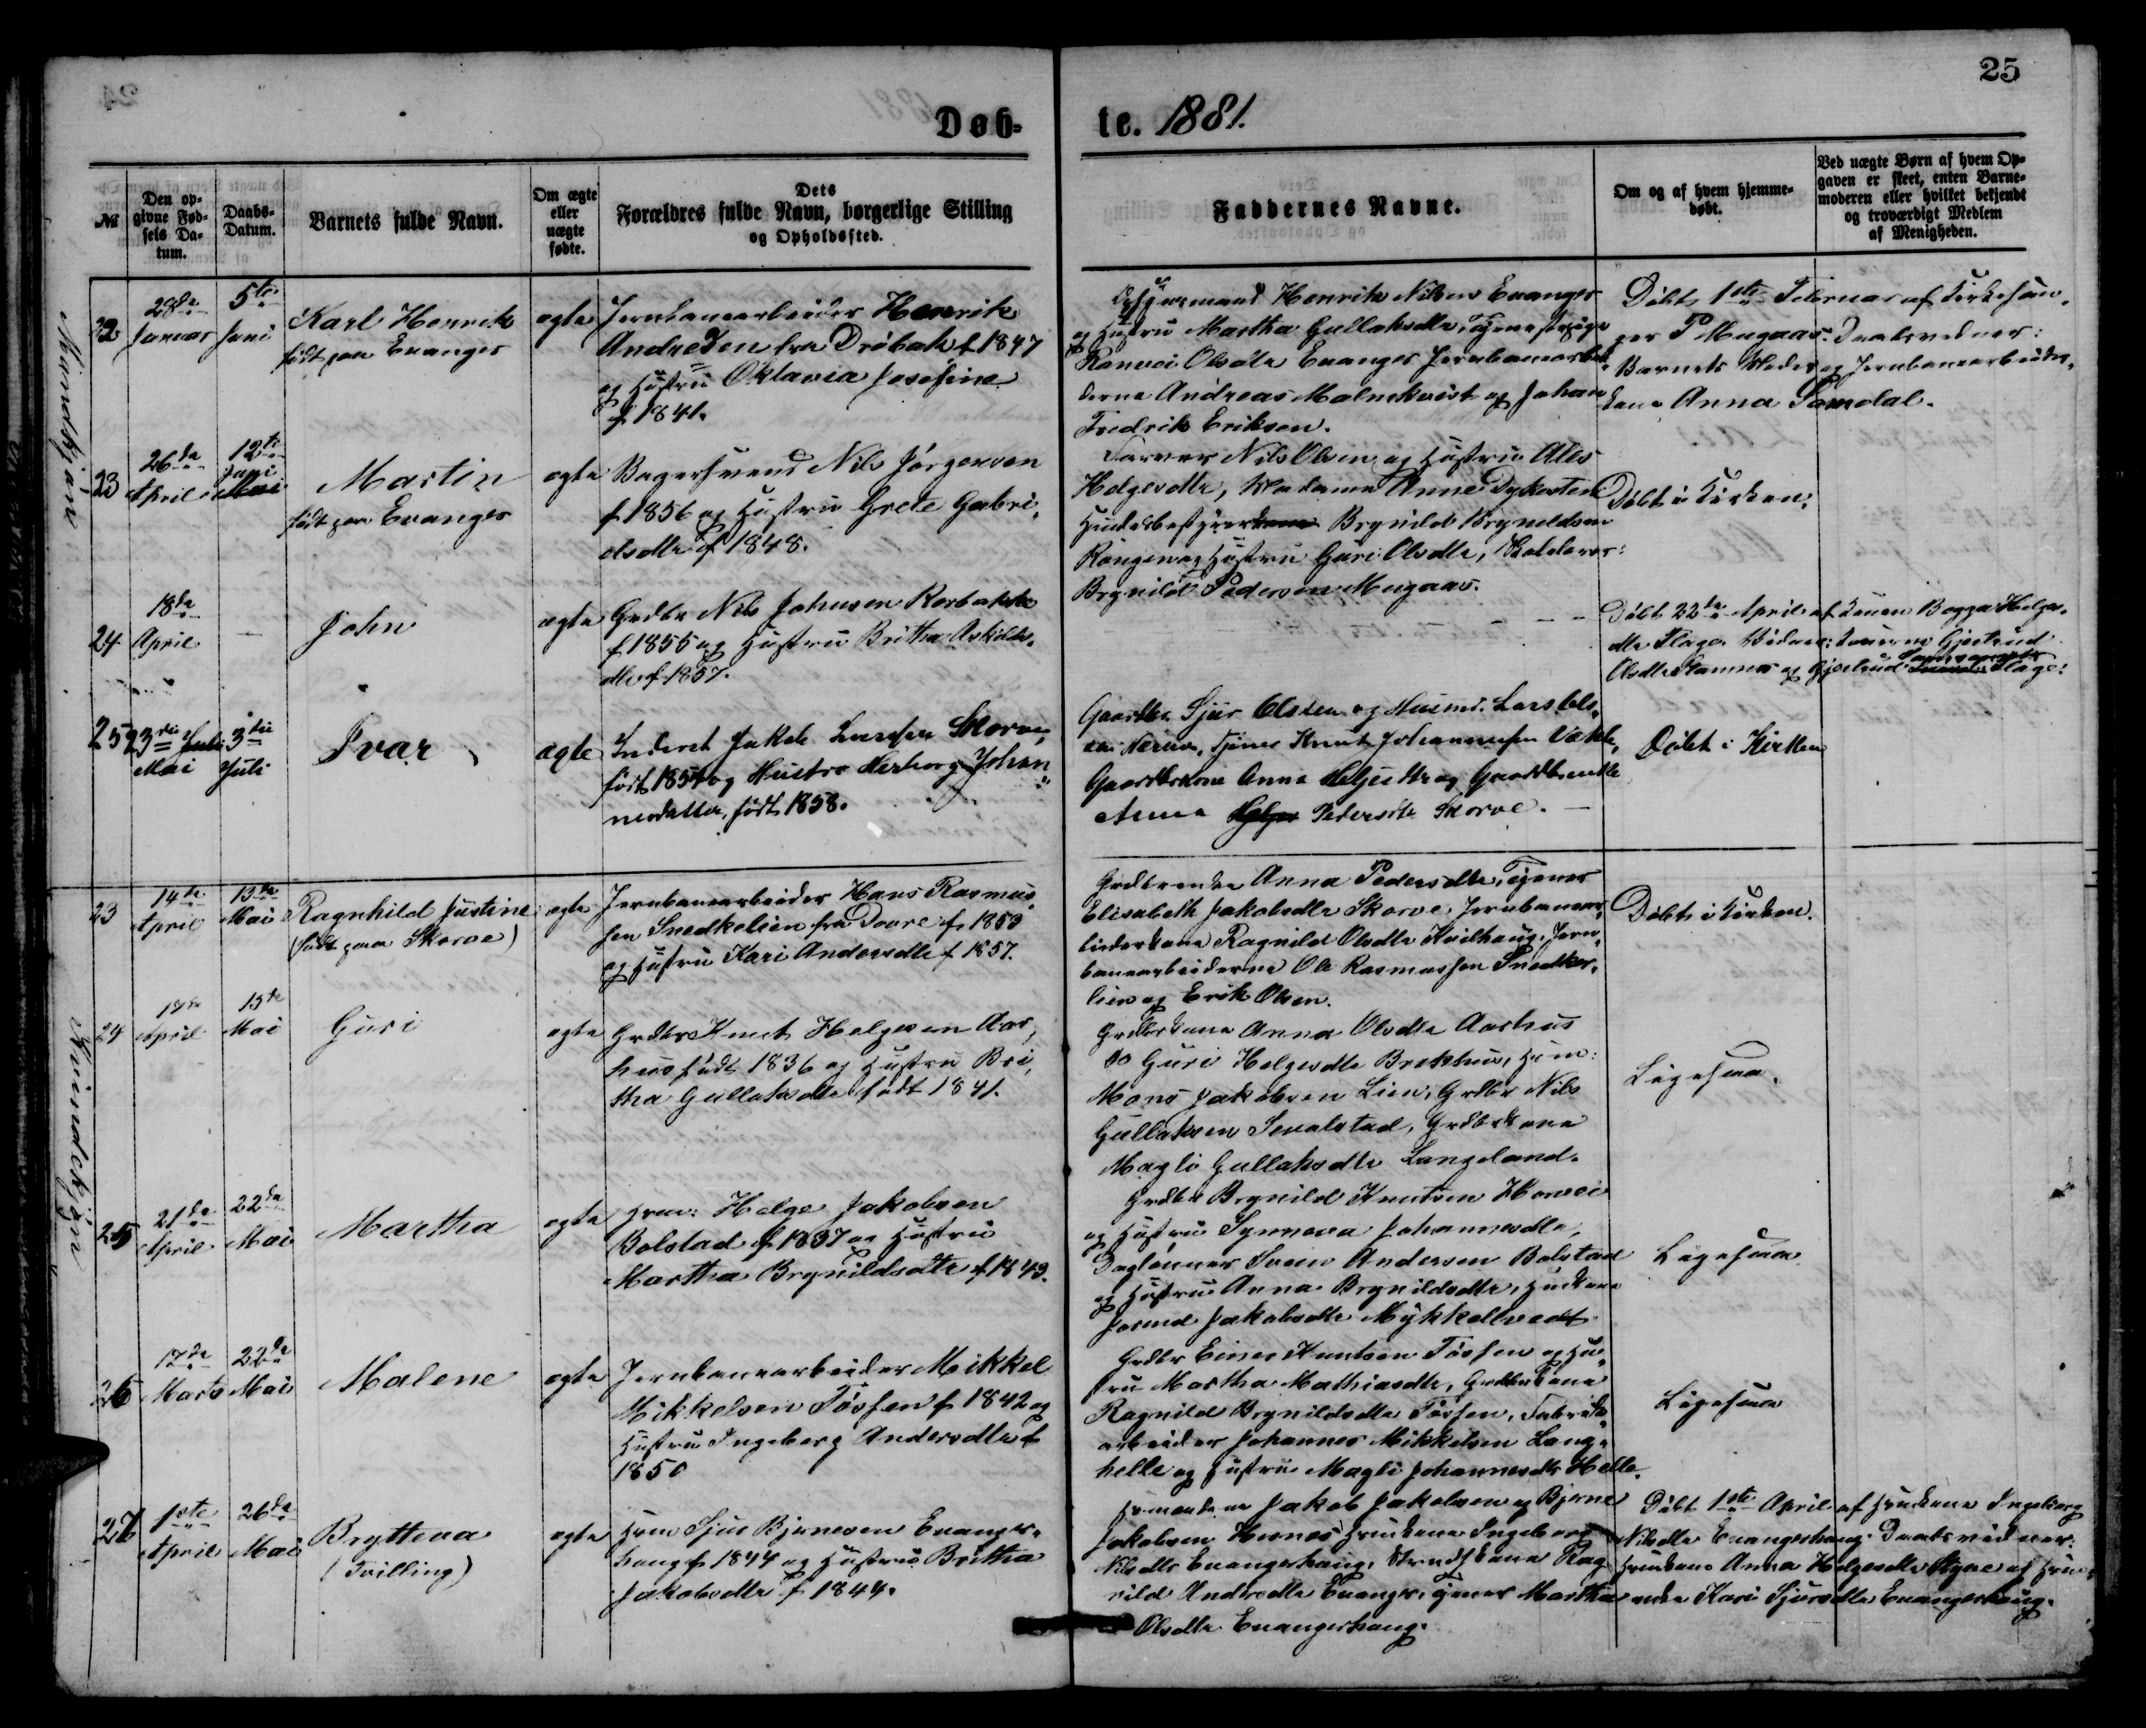 25
Døb-
te. 1881.
№
Den op-
givne Fød-
sels Da-
tum.
Daabs-
Datum.
Barnets fulde Navn.
Om ægte
eller
uægte
fødte.
Dets
Forældres fulde Navn, borgerlige Stilling
og Opholdssted.
Faddernes Navne.
Om og af hvem hjemme-
døbt.
Ved uægte Børn af hvem Op-
gaven er skeet, enten Barne-
moderen eller hvilket bekjendt
og troværdigt Medlem
af Menigheden.
Mandkjøn
22
28de
Januar
5te
Juni
Karl Henrik
født paa Evanger
ægte
Jernbanearbeider Henrik
Andresen fra Drøbak f 1847
og Hustru Oktavia Josefine
f 1841.
Henrik Nilsen Evanger
og Hustru Martha Gullaksdtr, Tjenestepige
Ranvei Olsdtr Evanger Jernbanearbei
derne Andreas Malmkvist og Johan
Fredrik Eriksen.
Døbt 1ste Februar af Kirkesan-
ger P Mugaas. Daabsvidner:
Barnets Moder og Jernbanearbeider-
kone Anna Somdal.
23
26de
April
12te
Juni
Mai
Martin
født paa Evanger
ægte
Bagersvend Nils Jørgensen
f 1856 og Hustru Grete Gabri-
elsdtr f 1848.
Farver Nils Olsen og Hustru Ales
Helgesdtr, Madame Anne Dykesten
Brynild Brynildsen
og Hustru Guri Olsdtr,
Brynild Pedersen Mugaas.
Døbt i Kirken.
24
18de
April
-
John
ægte
Grdbr Nils Johnsen Horbakke
f 1855 og Hustru Britha Askilds-
dtr f 1857.
- - -
Døbt 22de April af Konen Bogga Helges-
dtr Flage. Vidner: Konerne Gjertrud
Olsdtr Stamnes og Gjertrud Flage.
25
23die Juli
Mai
3die
Juli
Ivar
ægte
Inderst Jakob Larsen Skorve,
født 1854 og Hustro Herborg Johan
nesdatter, født 1858.
Gaardbr. Sjur Olsen og Husmd. Lars Ols-
en Nærum, Tjener Knut Johannessen Vækle,
Gaardbrkone Anna og Gaardbrenke
Anna Helges Pedersdtr Skorve. —
Døbt i Kirken
Kvindekjøn
23
14de
April
13de
Mai
Ragnhild Justine
(født paa Skorve)
ægte
Jernbanearbeider Hans Rasmus-
sen Snedkelien fra Dovre f 1853
og Hustru Kari Andersdtr f 1857.
Grdbrenke Anna Pedersdtr, Tjener
Elisabeth Jakobsdtr Skorve, Jernbanear-
beiderkone Ragnild Olsdtr Kvilhaug, Jern-
banearbeiderne Ole Rasmussen Snedker-
lien og Erik Olsen.
Døbt i Kirken.
24
17de
April
15de
Mai
Guri
ægte
Grdbr Knut Helgesen Aar-
hus født 1836 og Hustru Bri-
tha Gullaksdtr født 1841.
Grdbrkone Anna Olsdtr Aarhus
Do Guri Helgesdtr Brekhus, Husm:
Mons Jakobsen Lien, Grdbr Nils
Gullaksen Sevalstad, Grdbrkone
Magli Gullaksdtr Langeland.
Ligesaa.
25
21de
April
22de
Mai
Martha
ægte
Husm: Helge Jakobsen
Bolstad f 1837 og Hustru
Martha Brynildsdtr f 1843.
Grdbr Brynild Knutsen Horvei
og Hustru Synneva Johannesdtr,
Daglønner Svein Andersen Bolstad
og Hustru Anna Brynildsdtr, Huskone
Jorund Jakobsdtr Mykkeltvedt.
Ligesaa.
26
17de
Marts
22de
Mai
Malene
ægte
Jernbanearbeider Mikkel
Mikkelsen Tøssen f 1842 og
Hustru Ingeborg Andersdtr f
1850
Grdbr Einar Knutsen Tøssen og Hu-
stru Martha Mathiasdtr, Grdbrkone
Ragnild Brynildsdtr Tøssen, Fabrik-
arbeider Johannes Mikkelsen Lang-
helle og Hustru Magli Johannesdtr Helle.
Ligesaa
27
1ste
April
26de
Mai
Brytteva
(Tvilling)
ægte
Husm Sjur Bjørnesen Evanger-
haug f 1844 og Hustru Britha
Jakobsdtr f 1844.
Husmændene Jakob Jakobsen og Bjørne
Jakobsen Hernes, Huskone Ingeborg
Nilsdtr Evangerhaug, Strandskone Rag-
nild Andersdtr Evanger, Tjener Martha
Olsdtr Evangerhaug.
Døbt 1ste April af Huskone Ingeborg
Nilsdtr Evangerhaug. Daabsvidner:
Huskone Anna Helgesdtr og Husm-
enke Kari Sjursdtr Evangerhaug.